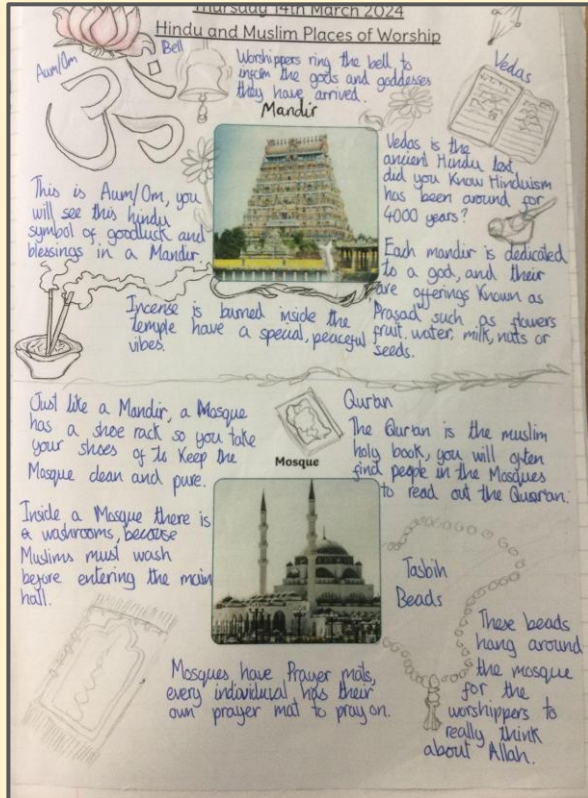 Thursday 14th March 2024
Hindu and Muslim Places of Worship
Aum/Om
Bell
Worshippers ring the bell to
inform the gods and goddesses
they have arrived.
Vedas
Mandir
This is Aum/Om, you
will see this hindu
symbol of goodluck and
blessings in a Mandir.
Vedas is the
ancient Hindu text,
did you know Hinduism
has been around for
4000 years?
Each mandir is dedicated
to a god, and their
are offerings Known as
Prasad such as flowers
fruit, water, milk, nuts or
seeds.
Incense is burned inside the
temple have a special, peaceful
vibes.
Just like a Mandir, a Mosque
has a shoe rack so you take
your shoes of to Keep the
Mosque clean and pure.
Qur'an
The Qur'an is the muslim
holy book, you will often
find people in the Mosques
to read out the Qusr'an.
Mosque
Inside a Mosque there is
a washrooms, because
Muslims must wash
before entering the main
hall.
Tasbih
Beads
These beads
hang around
the mosque
for the
worshippers to
really think
about Allah.
Mosques have Prayer mats,
every individual has their
own prayer mat to pray on.